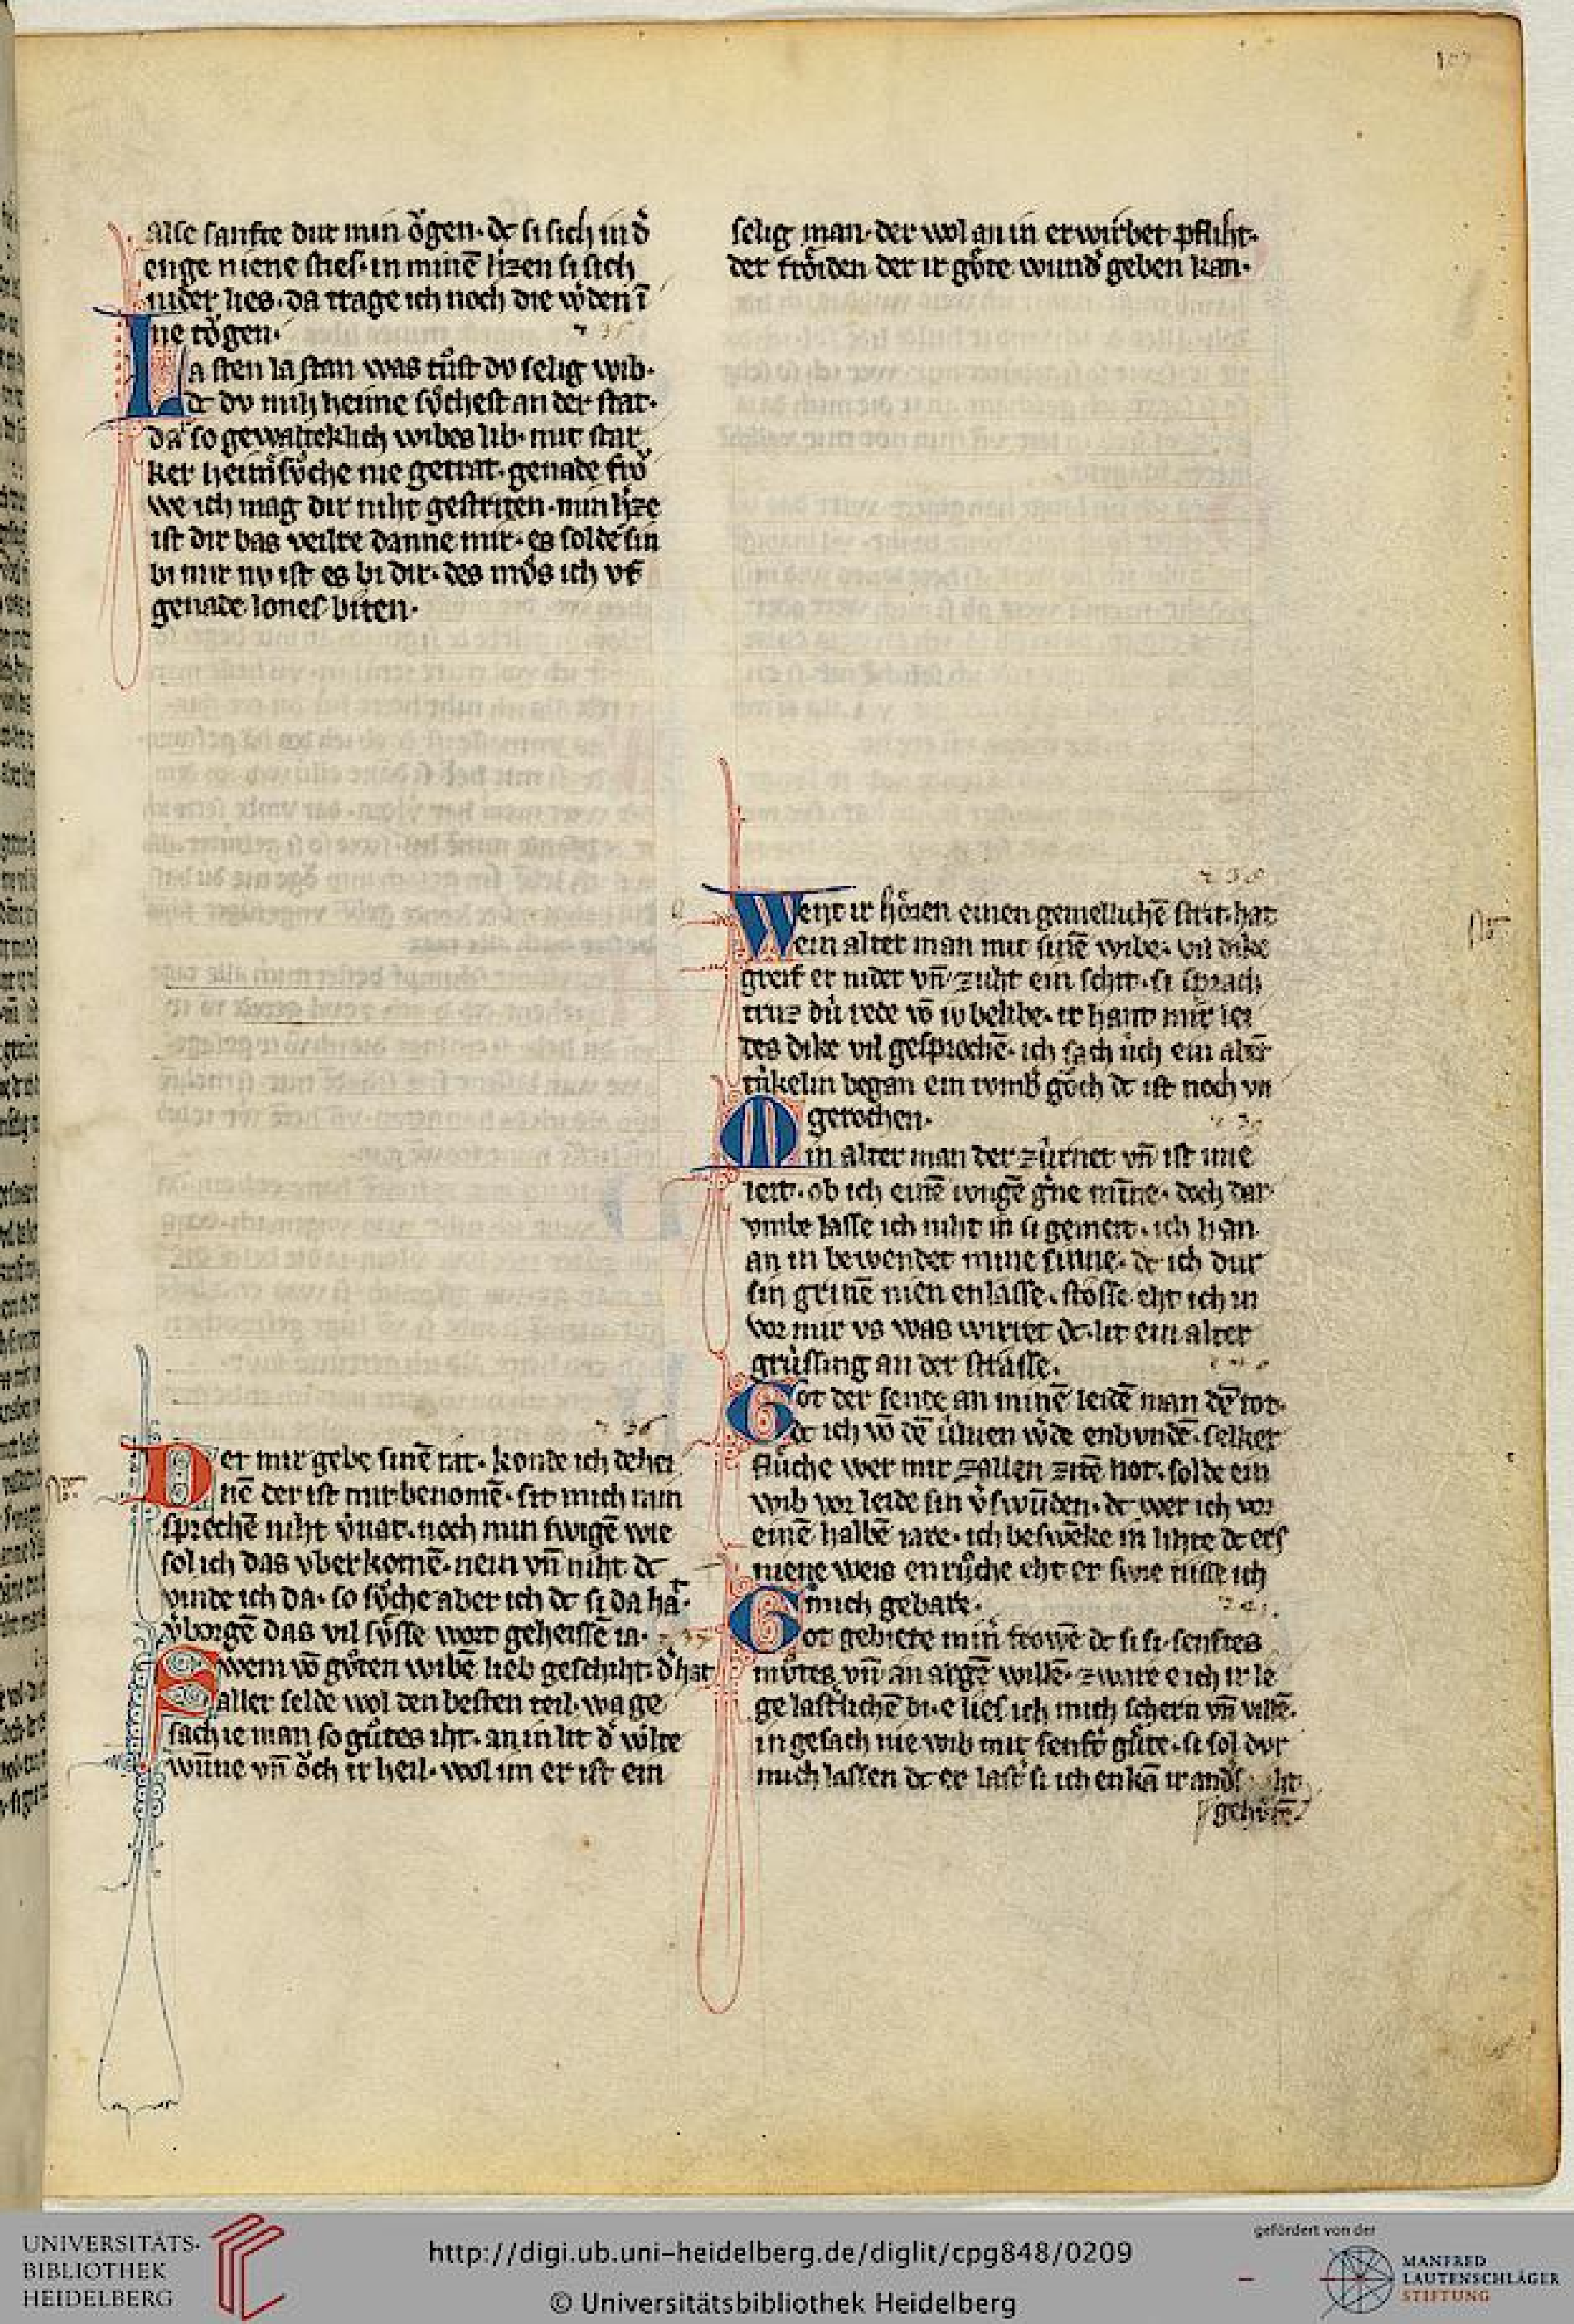 alse sanfte dur min ǒgen· dc si sich in d̕
enge niene sties· in minē h̕zen si sich
nider lies· da trage ich noch die w̕den ī
ne tǒgen·
La sten la stan was tůst dv selig wib·
dc dv mih heime sůchest an der stat·
da so gewalteklich wibes lib· mit star
ker heimsůche nie getrat· genade frǒ
we ich mag dir niht gestriten· min h̕ze
ist dir bas veilre danne mir· es solde sin
bi mir nv ist es bi dir· des můs ich vf
genade lones biten·
Der mir gebe sinē rat· konde ich dehei
nē der ist mir benomē· sit mich min
sprechē niht v̕vat· noch min swigē wie
sol ich das vberkomē· nein vn̄ niht dc
vinde ich da· so sůche aber ich dc si da hat
v̕borgē das vil sůsse wort geheissē ia·
Swem vō gůten wibē lieb geschiht· d̕ hat
aller selde wol den besten teil· wa ge
sach ie man so gůtes iht· an in lit d̕ w̕lte
wūne vn̄ ǒch ir heil· wol im er ist ein
selig man· der wol an in erwirbet pfliht·
der frǒiden der ir gůte wund̕ geben kan·
Went ir hǒren einen gemellichē strit· hat
ein alter man mit sinē wibe· vil dike
greif er nider vn̄ zuht ein schit· si sprach
truz dú rede vō iv belibe· ir hant mir lei
des dike vil gesprochē· ich sach úch ein alter
túkelin began ein tvmb̕ gǒch dc ist noch vn
gerochen·
Min alter man der zúrnet vn̄ ist mie
leit· ob ich einē ivngē g̕ne mīne· doch dar
vmbe lasse ich niht in si gemeit· ich han
an in bewendet mine sinne· dc ich dur
sin grinē nien enlasse· stosse eht ich in
vor mir vs was wirret dc· lit ein alter
grússing an der strasse·
Got der sende an minē leidē man dē tot·
dc ich vō dē úlven w̕de enbvndē· selker
flúche wer mir zallen zitē not· solde ein
wib vor leide sin v̕swūden· dc wer ich vor
einē halbē iare· ich beswēke in lihte dc ers
niene weis enrůche eht er swie nisse ich
mich gebare·
Got gebiete min̄ frowē dc si si senftes
můtes vn̄ an argē willē· zware e ich ir le
ge lasterlichē bi· e lies ich mich schern vn̄ villē·
in gesach nie wib mit senft̕ gůte· si sol dvr
mich lassen dc er laster si ich enkā ir and̕s niht
gehůtē
UNIVERSITÄTS-
BIBLIOTHEK
HEIDELBERG
http://digi.ub.uni-heidelberg.de/diglit/cpg848/0209
© Universitätsbibliothek Heidelberg
gefördert von der
MANFRED
LAUTENSCHLÄGER
STIFTUNG